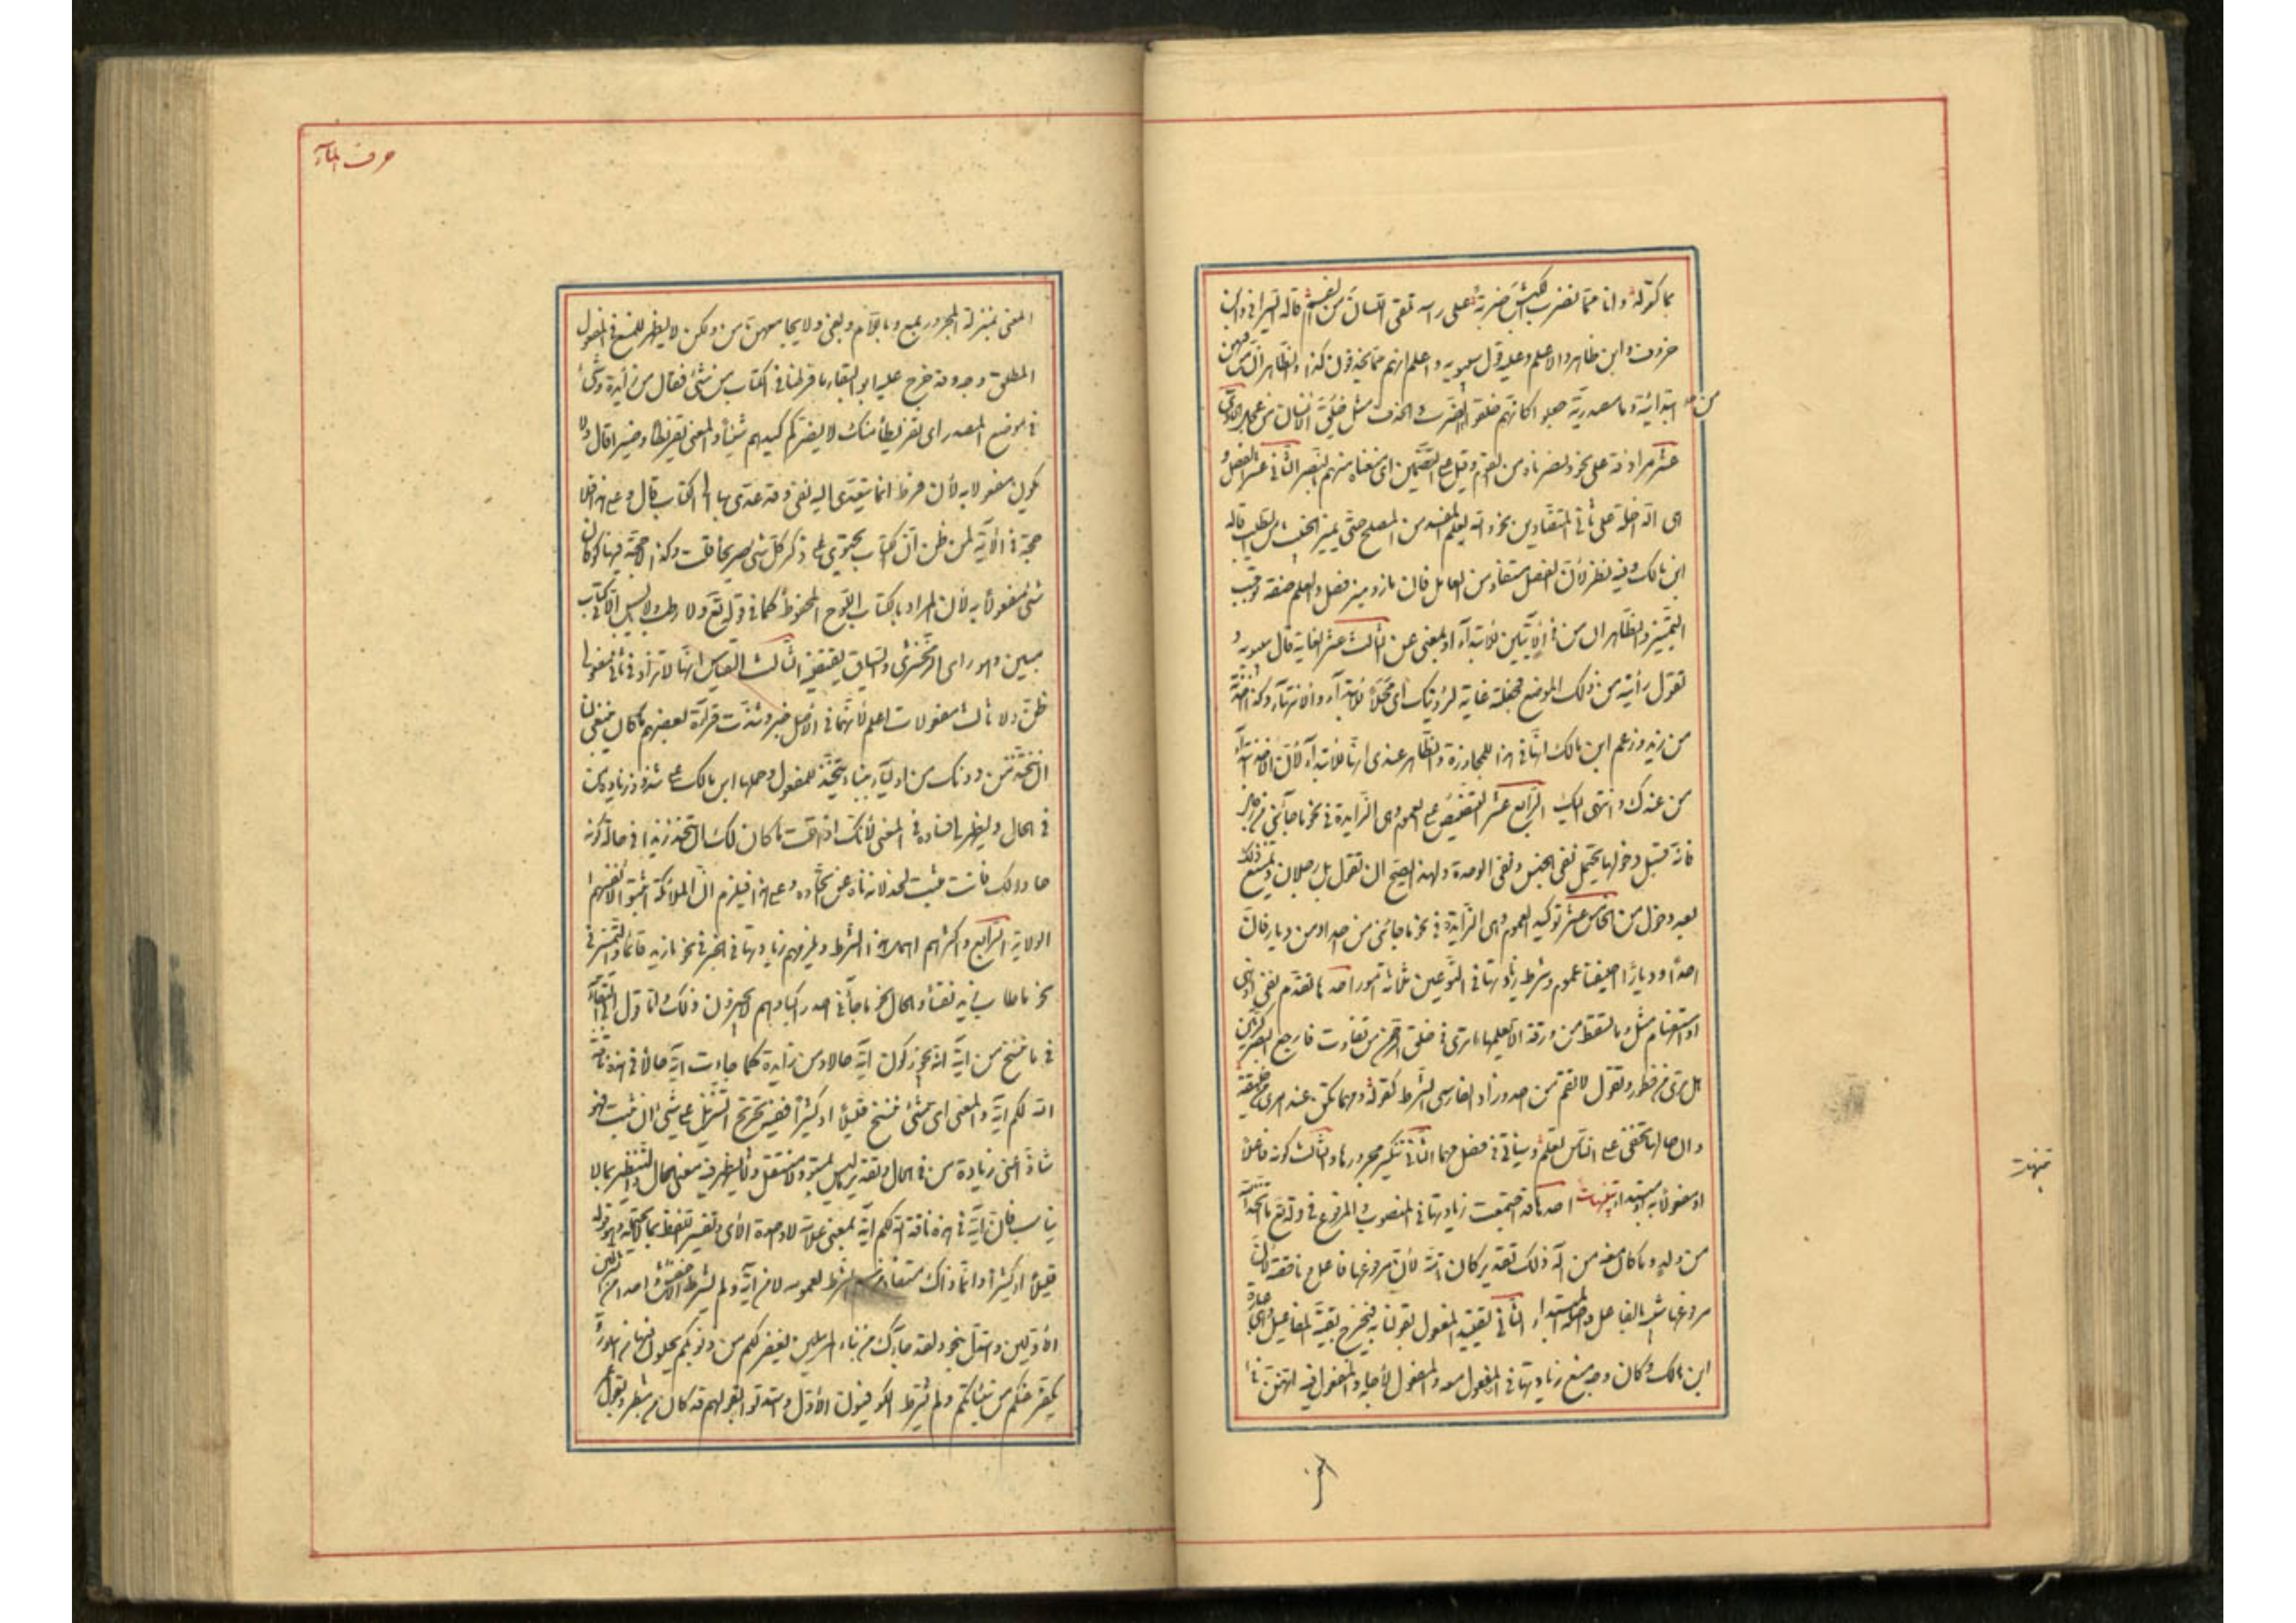 بما كقوله وانا لمما نضرب الكبش ضربة على راسه تلقى اللسان من الفم قاله السيرافي وابن
خروف وابن طاهر والاعلم وعليه قول سيبويه واعلم انهم مما يحذفون كذا والظاهر ان من فيهن
ابتدائية وما مصدرية جعلوا كانهم خلقوا من الضرب والحذف مثل خلق الانسان من عجل الحادي
عشر مرادفة على نحو ونصرناه من القوم وقيل على التضمين اى منعناه منهم بالنصر الثاني عشر الفصل و
هى الداخلة على ثاني المتضادين نحو والله يعلم المفسد من المصلح حتى يميز الخبيث من الطيب قاله
ابن مالك وفيه نظر لأن الفصل مستفاد من العامل فان ماز وميز فصل والعلم صفة توجب
التمييز والظاهر ان من في الآيتين للابتداء او بمعنى عن الثالث عشر الغاية قال سيبويه و
تقول رأيته من ذلك الموضع فجعلته غاية لرؤيتك اى محلا للابتداء والانتهاء وكذا اخذته
من زيد وزعم ابن مالك انها في هذا للمجاوزة والظاهر عندى انها للابتداء لأن الاخذ ابتداء
من عنده وانتهى اليك الرابع عشر التنصيص على العموم وهى الزايدة في نحو ما جاءني من رجل
فانه قبل دخولها يحتمل نفى الجنس ونفى الوحدة ولهذا يصح ان تقول بل رجلان ويمتنع ذلك
بعد دخول من الخامس عشر توكيد العموم وهى الزايدة في نحو ما جاءني من احد او من ديار فان
احدا وديارا صيغتا عموم وشرط زيادتها في النوعين ثلاثة امور احدها تقدم نفى او نهى
او استفهام مثل وما تسقط من ورقة الا يعلمها ما ترى في خلق الرحمن من تفاوت فارجع البصر
هل ترى من فطور وتقول لا يقم من احد وزاد الفارسى الشرط كقوله ومهما تكن عند امرئ من خليقة
وان خالها تخفى على الناس تعلم وسياتي في فصل مهما الثاني تنكير مجرورها والثالث كونه فاعلا
او مفعولا به او مبتدا تنبيهات احدها قد اجتمعت زيادتها في المنصوب والمرفوع في قوله تع ما اتخذ الله
من ولد وما كان معه من اله ذلك تقدير كان تامة لأن مرفوعها فاعل لا ناقصة لان
مرفوعها شبيه بالفاعل واصله المبتدا الثاني تقييد المفعول بقولنا به يخرج بقية المفاعيل وهى عبارة
ابن مالك وكان وجه منع زيادتها في المفعول معه والمفعول لاجله والمفعول فيه انهن في
تنبيهات
حرف الميم
المعنى بمنزلة المجرور بمع وباللام وبفى ولا يجامعهن من ولكن لا يظهر للمنع في المفعول
المطلق وجه وقد خرج عليه ابو البقاء ما فرطنا في الكتاب من شئ فقال من زايدة وشئ
في موضع المصدر اى تفريطا مثل لا يضركم كيدهم شيئا والمعنى تفريطا وضيرا قال ولا
يكون مفعولا به لأن فرط انما يتعدى اليه بفى وقد عدى بها الى الكتاب قال وعلى هذا فلا
حجة في الآية لمن ظن ان الكتاب يحتوى على ذكر كل شئ صريحا قلت وكذا لا حجة فيها لو كان
شئ مفعولا به لأن المراد بالكتاب اللوح المحفوظ كما في قوله تع ولا رطب ولا يابس الا في كتاب
مبين وهو راى الزمخشرى والسياق يقتضيه الثالث القياس انها لا تزاد في ثاني مفعولى
ظن ولا ثالث مفعولات اعلم لأنهما في الاصل خبر وشذت قراءة بعضهم ما كان ينبغى لنا
ان نتخذ من دونك من اولياء ببناء نتخذ للمفعول وحملها ابن مالك على شذوذ زيادة من
في الحال ويظهر لى فساده في المعنى لأنك اذا قلت ما كان لك ان تتخذ زيدا في حالة كونه
خاذلا لك فانت مثبت لخذلانه ناه عن اتخاذه وعلى هذا فيلزم ان الملائكة اثبتوا لانفسهم
الولاية الرابع واكثرهم اهملا هذا الشرط ويلزمهم زيادتها في الخبر في نحو ما زيد قائما والتمييز في
نحو ما طاب زيد نفسا والحال نحو ما جاءني احد راكبا وهم لا يجيزون ذلك واما قول ابى البقاء
في ما ننسخ من آية انه يجوز كون آية حالا ومن زايدة كما جاءت آية حالا في هذه ناقة
الله لكم آية والمعنى اى شئ ننسخ قليلا او كثيرا ففيه تخريج التنزيل على شئ ان ثبت فهو
شاذ اعنى زيادة من في الحال وتقدير ما ليس بمشتق ولا منتقل ولا يظهر فيه معنى الحال والتنظير بما لا
يناسب فان آية في هذه ناقة الله لكم آية بمعنى علامة لا واحدة الآى وتفسير اللفظ بما لا يحتمله وهو قوله
قليلا او كثيرا وانما ذاك مستفاد من اسم الشرط لعمومه لا من آية ولم يشترط الاخفش احد الشرطين
الاولين واستدل بنحو ولقد جاءك من نباء المرسلين يغفر لكم من ذنوبكم يحلون فيها من اساور
يكفر عنكم من سيئاتكم ولم يشترط الكوفيون الاول واستدلوا بقولهم قد كان من مطر وبقول